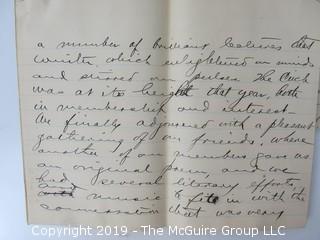 a number of brilliant lectures that
winter which enlightened our minds
and stirred our pulses. The Club
was at its height that year, both
in membership and interest.
We finally adjourned with a pleasant
gathering of our friends, where
another of our members gave us
an original poem, and we
had several literary efforts,
and music to fit in with the
conversation that was very
Copyright 2019 - The McGuire Company